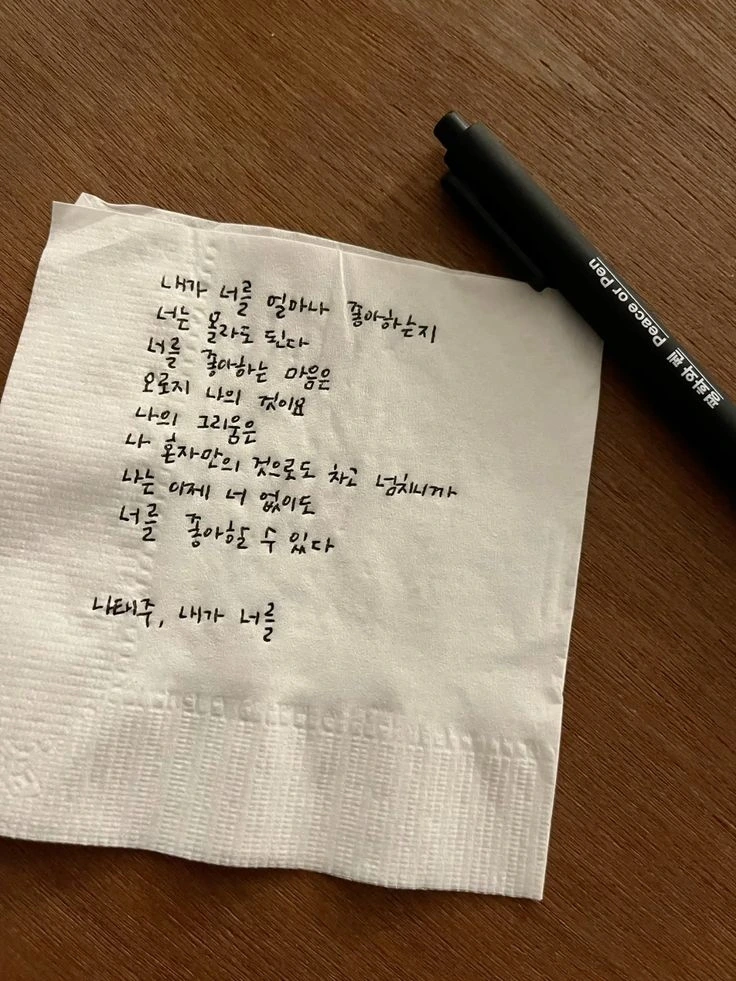 내가 너를 얼마나 좋아하는지
너는 몰라도 된다
너를 좋아하는 마음은
오로지 나의 것이요
나의 그리움은
나 혼자만의 것으로도 차고 넘치니까
나는 이제 너 없이도
너를 좋아할 수 있다
나태주, 내가 너를
평화와 펜 Peace or Pen